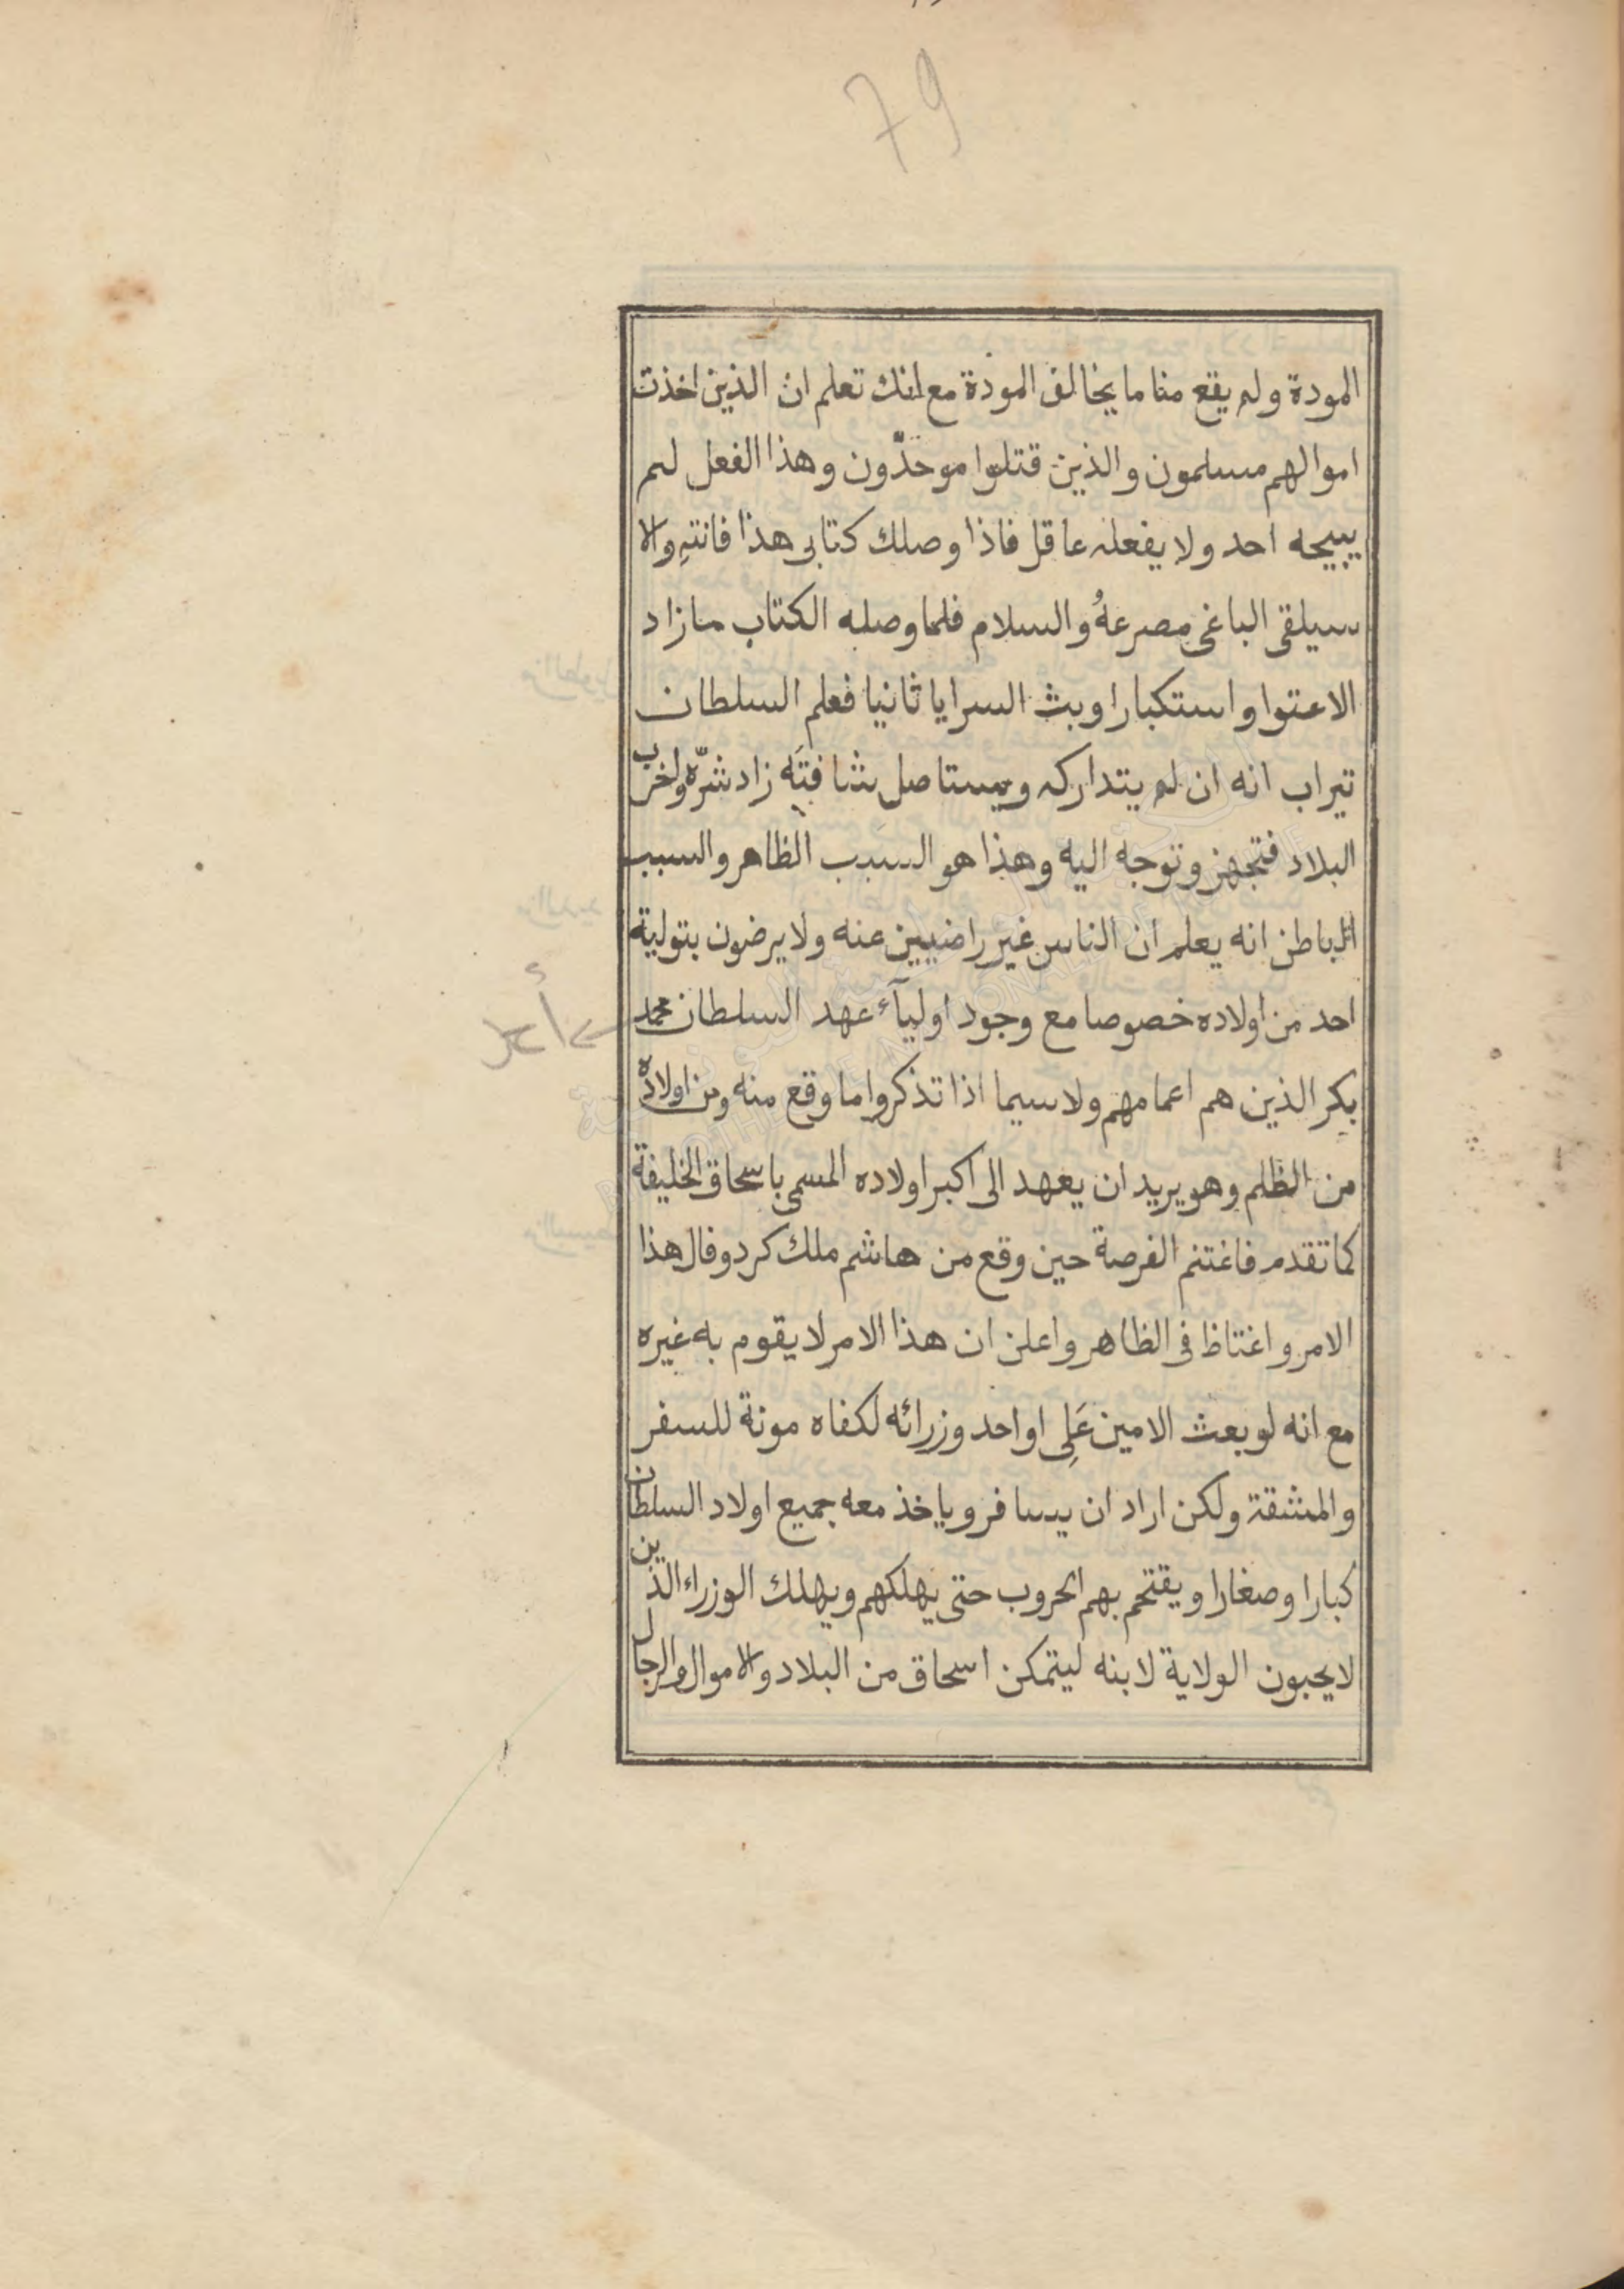 79
المودة ولم يقع منا ما يخالف المودة مع انك تعلم ان الذين اخذت
اموالهم مسلمون والذين قتلوا موحدّون وهذا الفعل لم
يبيحه احد ولا يفعله عاقل فاذا وصلك كتابى هذا فانتهِ والا
سيلقى الباغى مصرعهُ والسلام فلما وصله الكتاب ما زاد
الاعتوا واستكبارا وبث السرايا ثانيا فعلم السلطان
تيراب انه ان لم يتداركه ويستاصل شافتَه زاد شرّه ولخرب
البلاد فتجهز وتوجه اليه وهذا هو السبب الظاهر والسبب
الباطن انه يعلم ان الناس غير راضيين عنه ولا يرضون بتولية
احد من اولاده خصوصا مع وجود اوليآء عهد السلطان محمد
بكر الذين هم اعمامهم ولاسيما اذا تذكروا ما وقع منه ومن اولاده
من الظلم وهو يريد ان يعهد الى اكبر اولاده المسمى باسحاق الخليفة
كما تقدم فاغتنم الفرصة حين وقع من هاشم ملك كردوفال هذا
الامر واغتاظ فى الظاهر واعلن ان هذا الامر لا يقوم به غيره
مع انه لو بعث الامين عَلِى او احد وزرائه لكفاه مونة للسفر
والمشقة ولكن اراد ان يسافر وياخذ معه جميع اولاد السلطان
كبارا وصغارا ويقتحم بهم الحروب حتى يهلكهم ويهلك الوزراء الذين
لا يحبون الولاية لابنه ليتمكن اسحاق من البلاد والاموال والرجال